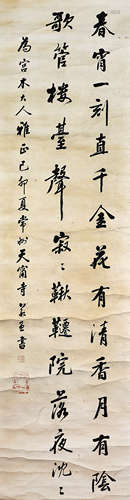 春宵一刻直千金花有清香月有陰
歌管樓臺聲寂〻鞦韆院落夜沈〻
為宮木大人雅正己卯夏常州天甯寺